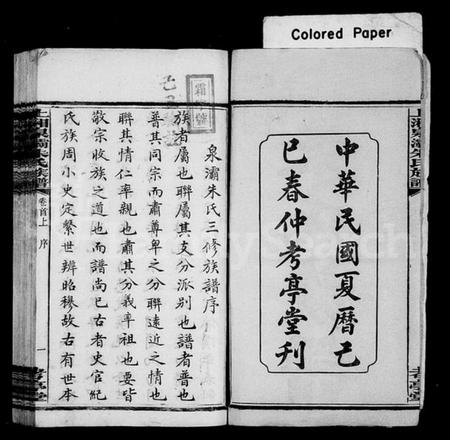 Colored Paper
中華民國夏曆己
巳春仲考亭堂刊
上湘泉灞朱氏族譜
泉灞朱氏三修族譜序
族者屬也聯屬其支分派別也譜者普也
普其同宗而肅尊卑之分聯遠近之情也
聯其情仁率親也肅其分義率祖也要皆
敬宗收族之道也而譜尚已古者史官紀
氏族周小史定繫世辨昭穆故古有世本
上湘泉灞朱氏族譜
卷首上
序
一
考亭堂